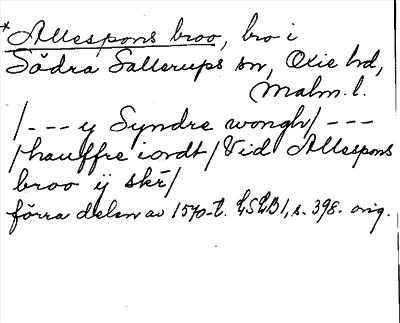 *Allespons broo, bro i
Södra Sallerups sn, Oxie hd,
Malm. l.
/--- y Syndre wongh/ ---
/hauffre iordt/ Vid Allespons
broo ÿ skř/
förra delen av 1570-t. LSLB1, s. 398. orig.